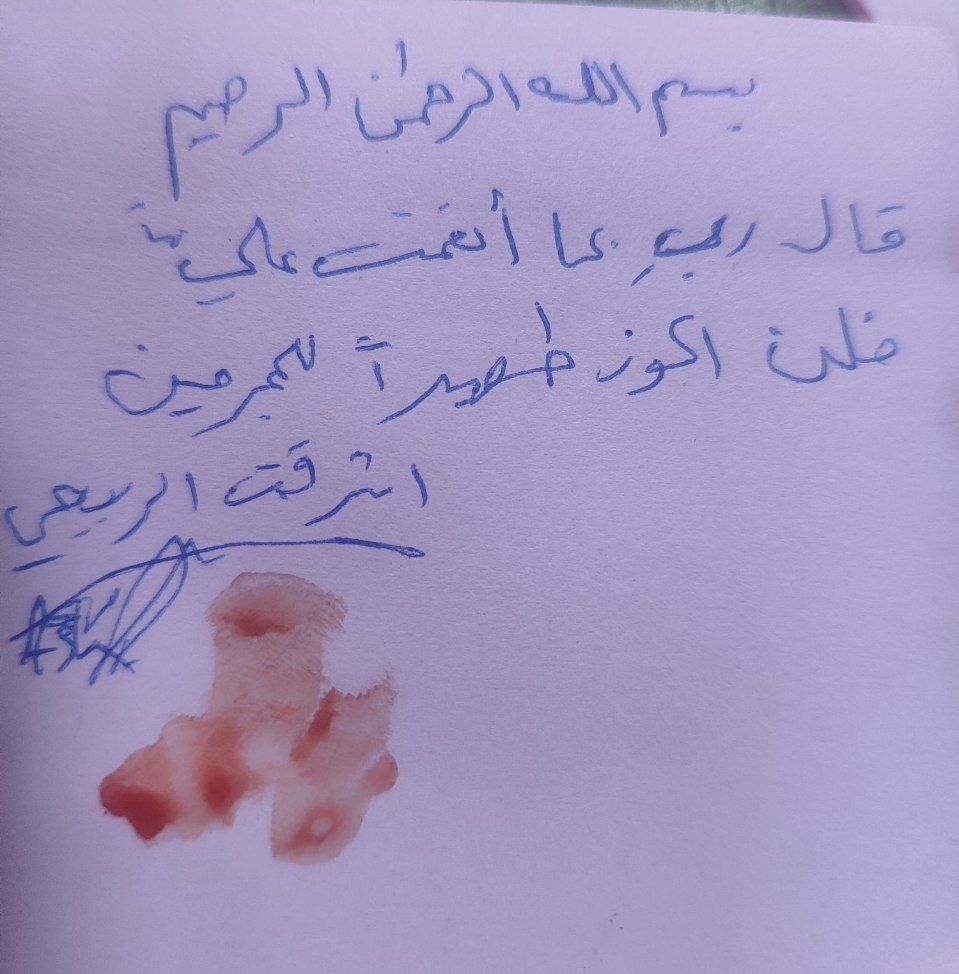 بسم الله الرحمن الرحيم
قال ربِ بما أنعمت عليَّ
فلن اكون ظهيراً للمجرمين
الربيعي